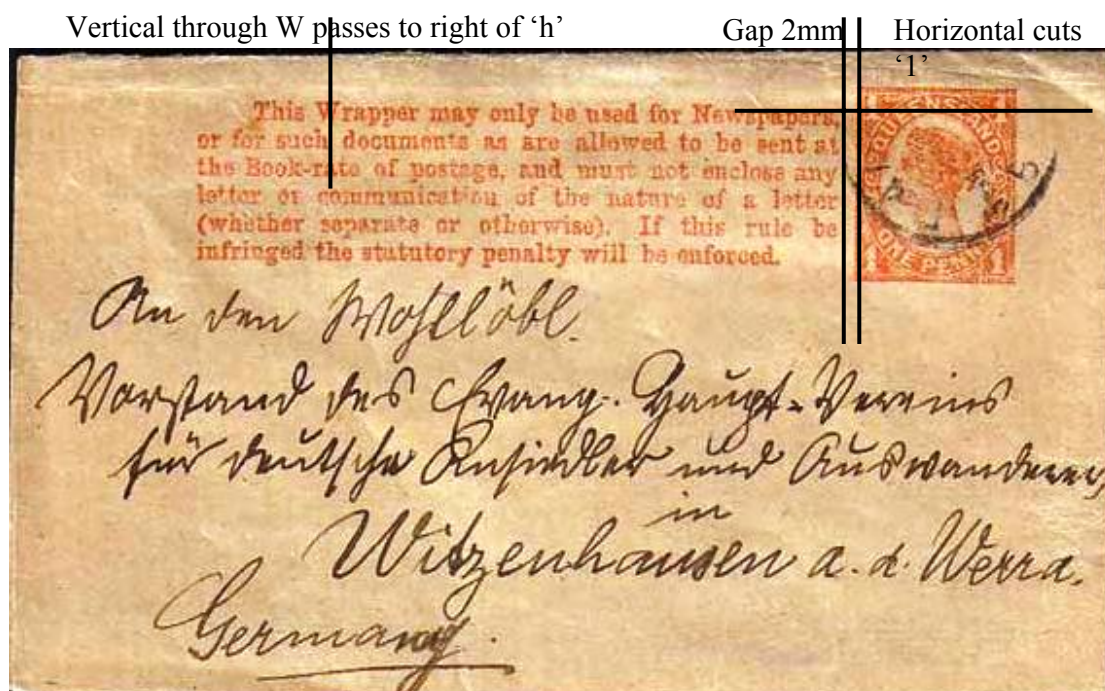 Vertical through W passes to right of ‘h’
Gap 2mm
Horizontal cuts
‘1’
This Wrapper may only be used for Newspapers,
or for such documents as are allowed to be sent at
the Book-rate of postage, and must not enclose any
letter or communication of the nature of a letter
(whether separate or otherwise). If this rule be
infringed the statutory penalty will be enforced.
QUEENSLAND
ONE PENNY 1
An den Wohllöbl.
Vorstand des Evang. Haupt-Vereins
für deutsche Ansiedler und Auswanderer,
in
Witzenhausen a. d. Werra.
Germany.